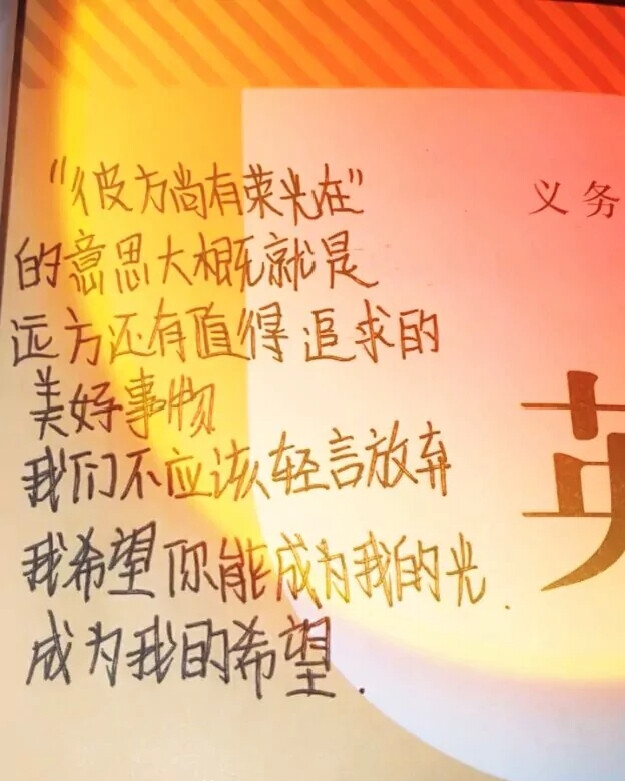 “彼方尚有荣光在”
的意思大概就是
远方还有值得追求的
美好事物
我们不应该轻言放弃
我希望你能成为我的光.
成为我的希望.
义务
英